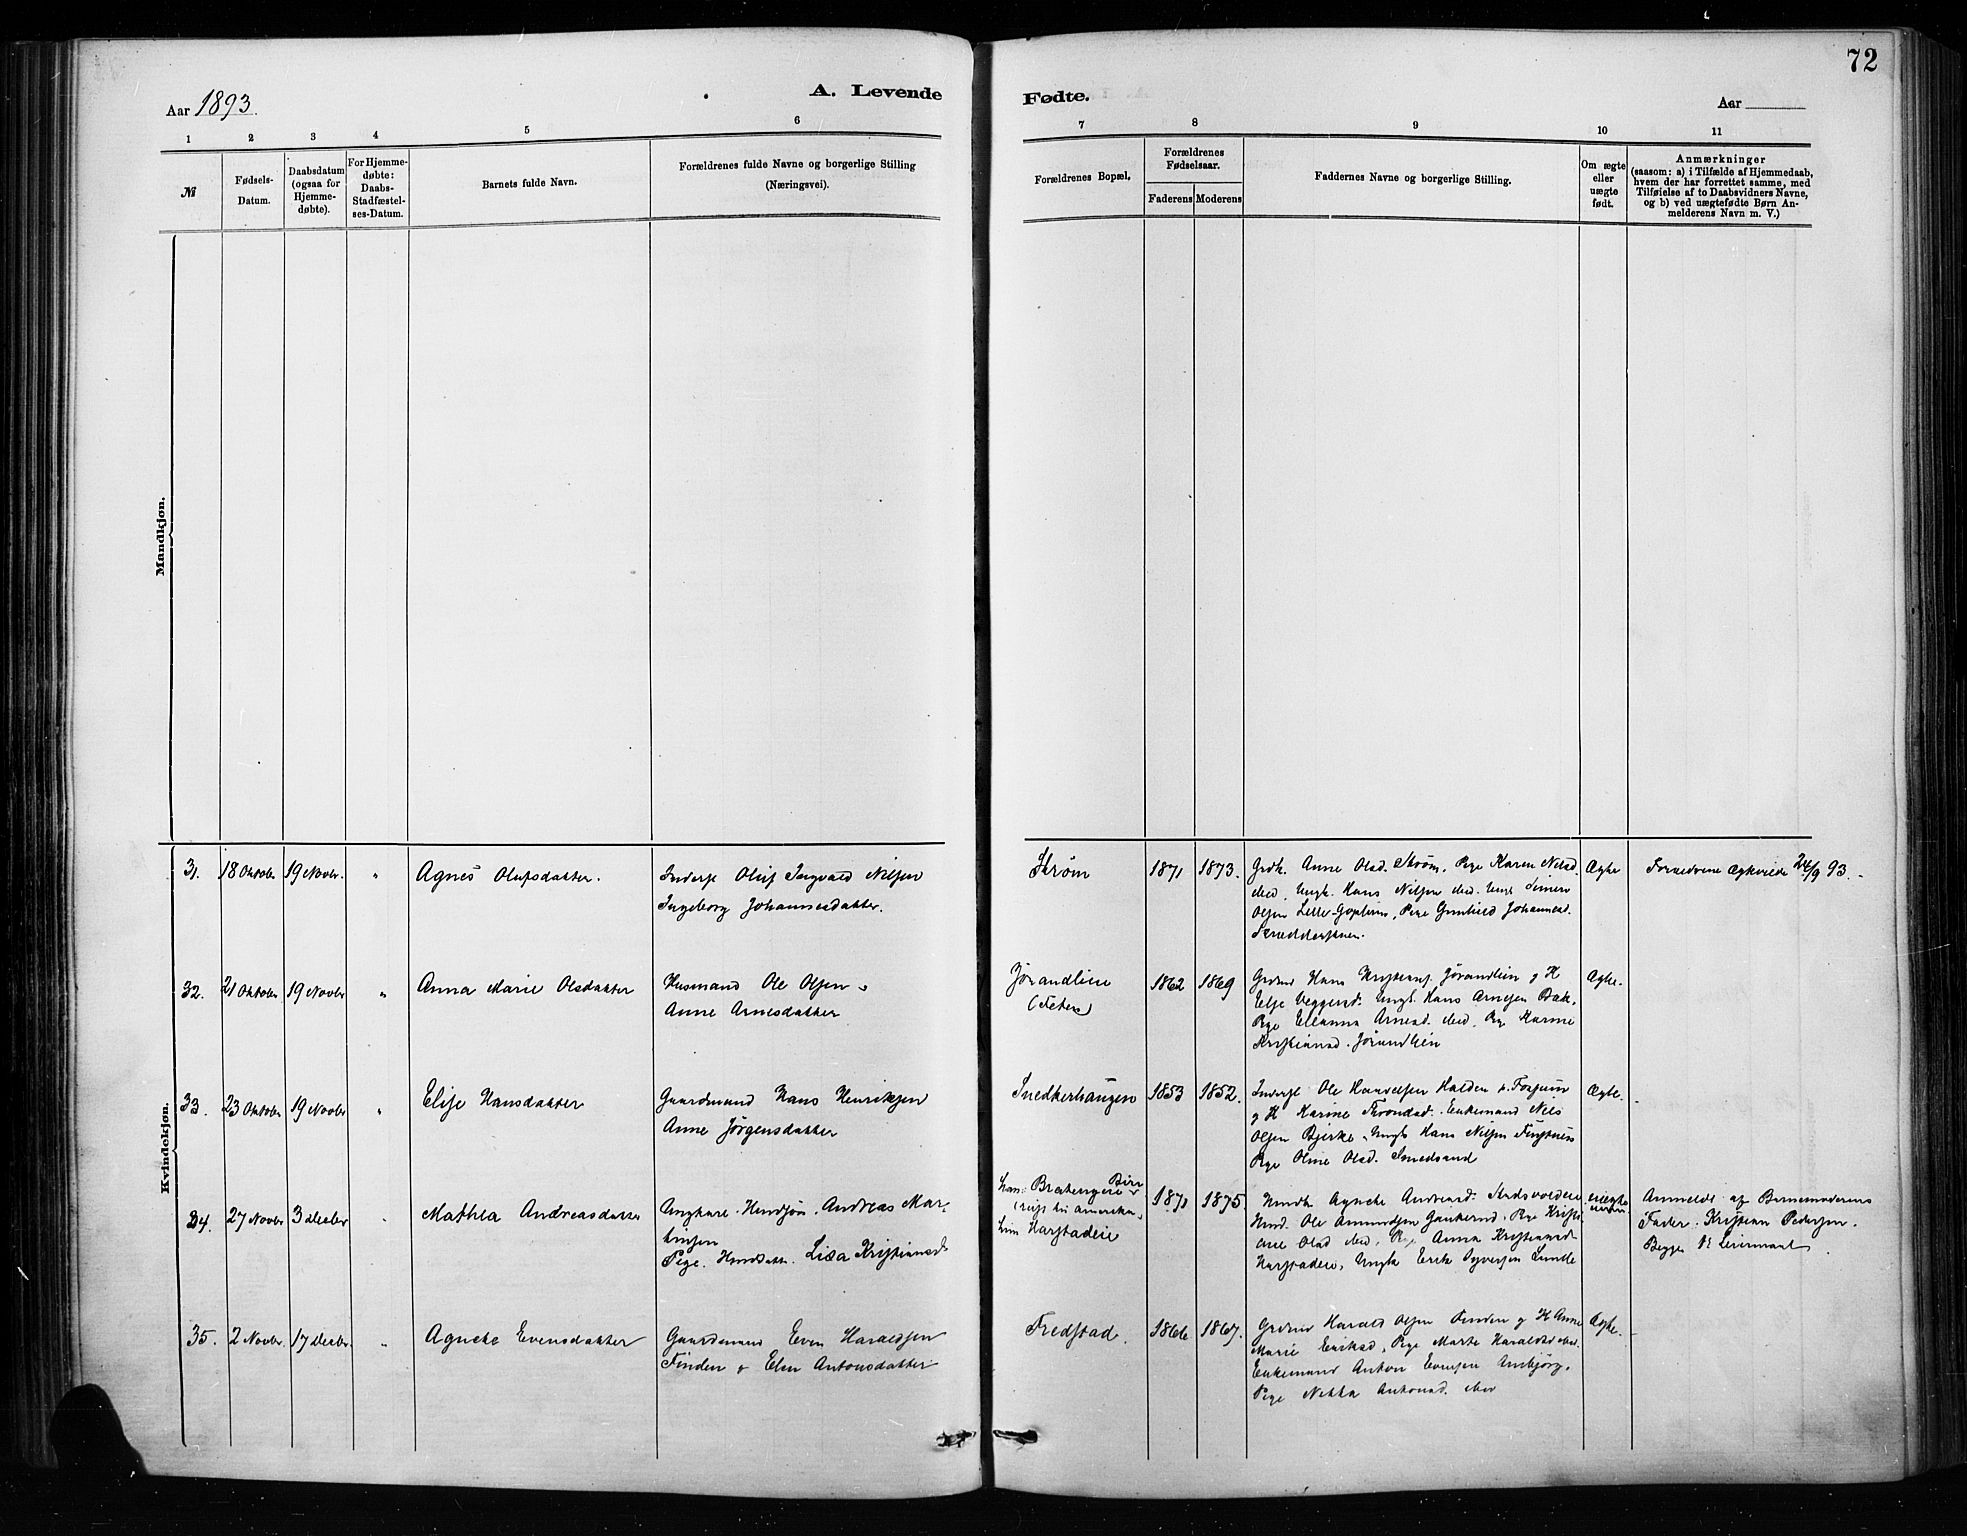 72
Aar 1893.
A. Levende
Fødte.
Aar
1 2 3 4 5 6
7 8 9 10 11
№
Fødsels-
Datum.
Daabsdatum
(ogsaa for
Hjemme-
døbte).
For Hjemme-
døbte:
Daabs-
Stadfæstel-
ses-Datum.
Barnets fulde Navn.
Forældrenes fulde Navne og borgerlige Stilling
(Næringsvei).
Forældrenes Bopæl.
Forældrenes
Fødselsaar.
Faderens Moderens
Faddernes Navne og borgerlige Stilling.
Om ægte
eller
uægte
født.
Anmærkninger
(saasom: a) i Tilfælde af Hjemmedaab,
hvem der har forrettet samme, med
Tilføielse af to Daabsvidners Navne,
og b) ved uægtefødte Børn An-
melderens Navn m. V.)
Mandkjøn.
Kvindekjøn.
31. 18 Oktober 19 Novbr. "
Agnes Olufsdatter.
Inderst Oluf Ingvald Nilsen
Ingeborg Johannesdatter.
Strøm
1871 1873.
Grdk. Anne Olsd. Strøm, Pige Karen Nilsd.
ibid, Ungk. Hans Nilsen ibid. Ungk Simen
Olsen Lille-, Pige Johannesd.
Ægte
Forældrene Ægteviede 24/9 93.
32. 21 Oktober 19 Novbr "
Anna Marie Olsdatter
Husmand Ole Olsen
Anne Arnesdatter
Jørandlien
1862 1869
Grdmd Hans Jørandlien g H
Ungk. Hans Arnesen Bak.
Pige Arnesd. ibid, Pig Karine
Kristiansd. Jørandlien
Ægte.
33. 23 Oktober 19 Novbr "
Elise Hansdatter
Gaardmand Hans Henriksen
Anne Jørgensdatter
Snedkerhaugen
1853 1852.
Inderst Ole Halden
g H Karine Throndsd. Enkemand Nils
Olsen Bjerke, Ungk Hans Nilsen
Pige Oline Olsd.
Ægte.
34. 27 Novbr 3 decbr "
Mathea Andreasdatter
Ungkarl. Andreas Mar-
tinsen
Pige. Lisa Kristiansd.
han:
(reist til Amerika)
hun Harstadeie
1871 1875.
Agnethe Andreasd.
Ole Amundsen, Pige Kristi-
ane Olsd ibid, Pige Anna Kristiansd
Harstadeie, Ungk Erik Syversen Lunde
uægte
Anmeldt af Barnemoderens
Fader. Kristian Pedersen.
Begge 1ste Leiermaal.
35. 2 Novbr. 17 decbr. "
Agnethe Evensdatter
Gaardmand Even Haraldsen
Finden & Elen Antonsdatter
Fredstad.
1866 1867.
Grdmd Harald Olsen Finden g H Anne
Marie, Pige Marte Haraldsd ibid.
Enkemand Anton Evensen,
Pige Antonsd. ibid
Ægte.